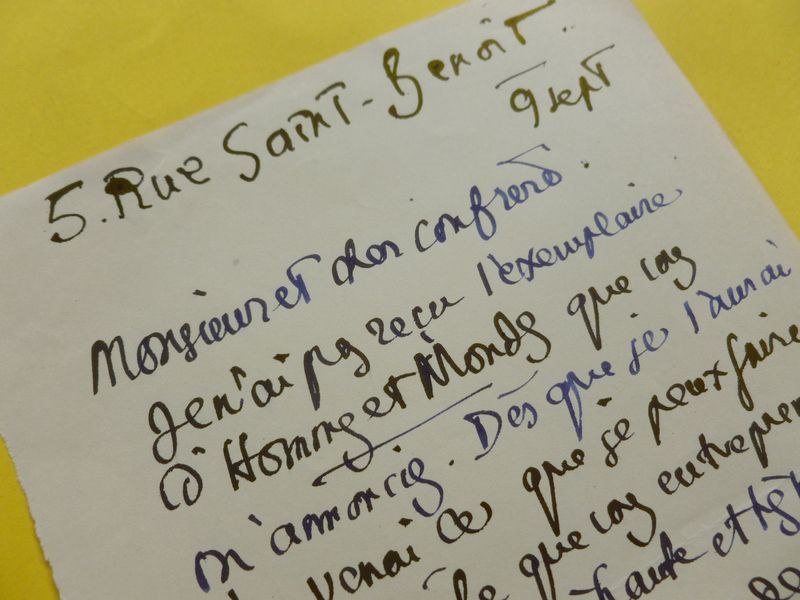 5. Rue Saint-Benoît.
9 sept
Monsieur et cher confrère.
Je n'ai pas reçu l'exemplaire
d'Hommes et Mondes que vous
m'annonciez. Dès que je l'aurai
ce que je peux faire
que vous entrepren
haute et